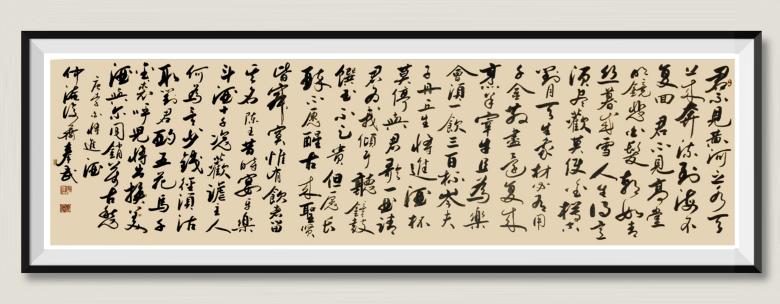 君不見黃河之水天
上來奔流到海不
復回君不見高堂
明鏡悲白髮朝如青
絲暮成雪人生得意
須盡歡莫使金樽空
對月天生我材必有用
千金散盡還復來
烹羊宰牛且為樂
會須一飲三百杯岑夫
子丹丘生將進酒杯
莫停與君歌一曲請
君為我傾耳聽鐘鼓
饌玉不足貴但願長
醉不願醒古來聖賢
皆寂寞惟有飲者留
其名陳王昔時宴平樂
斗酒十千恣歡謔主人
何為言少錢徑須沽
取對君酌五花馬千
金裘呼兒將出換美
酒與爾同銷萬古愁
唐李白將進酒